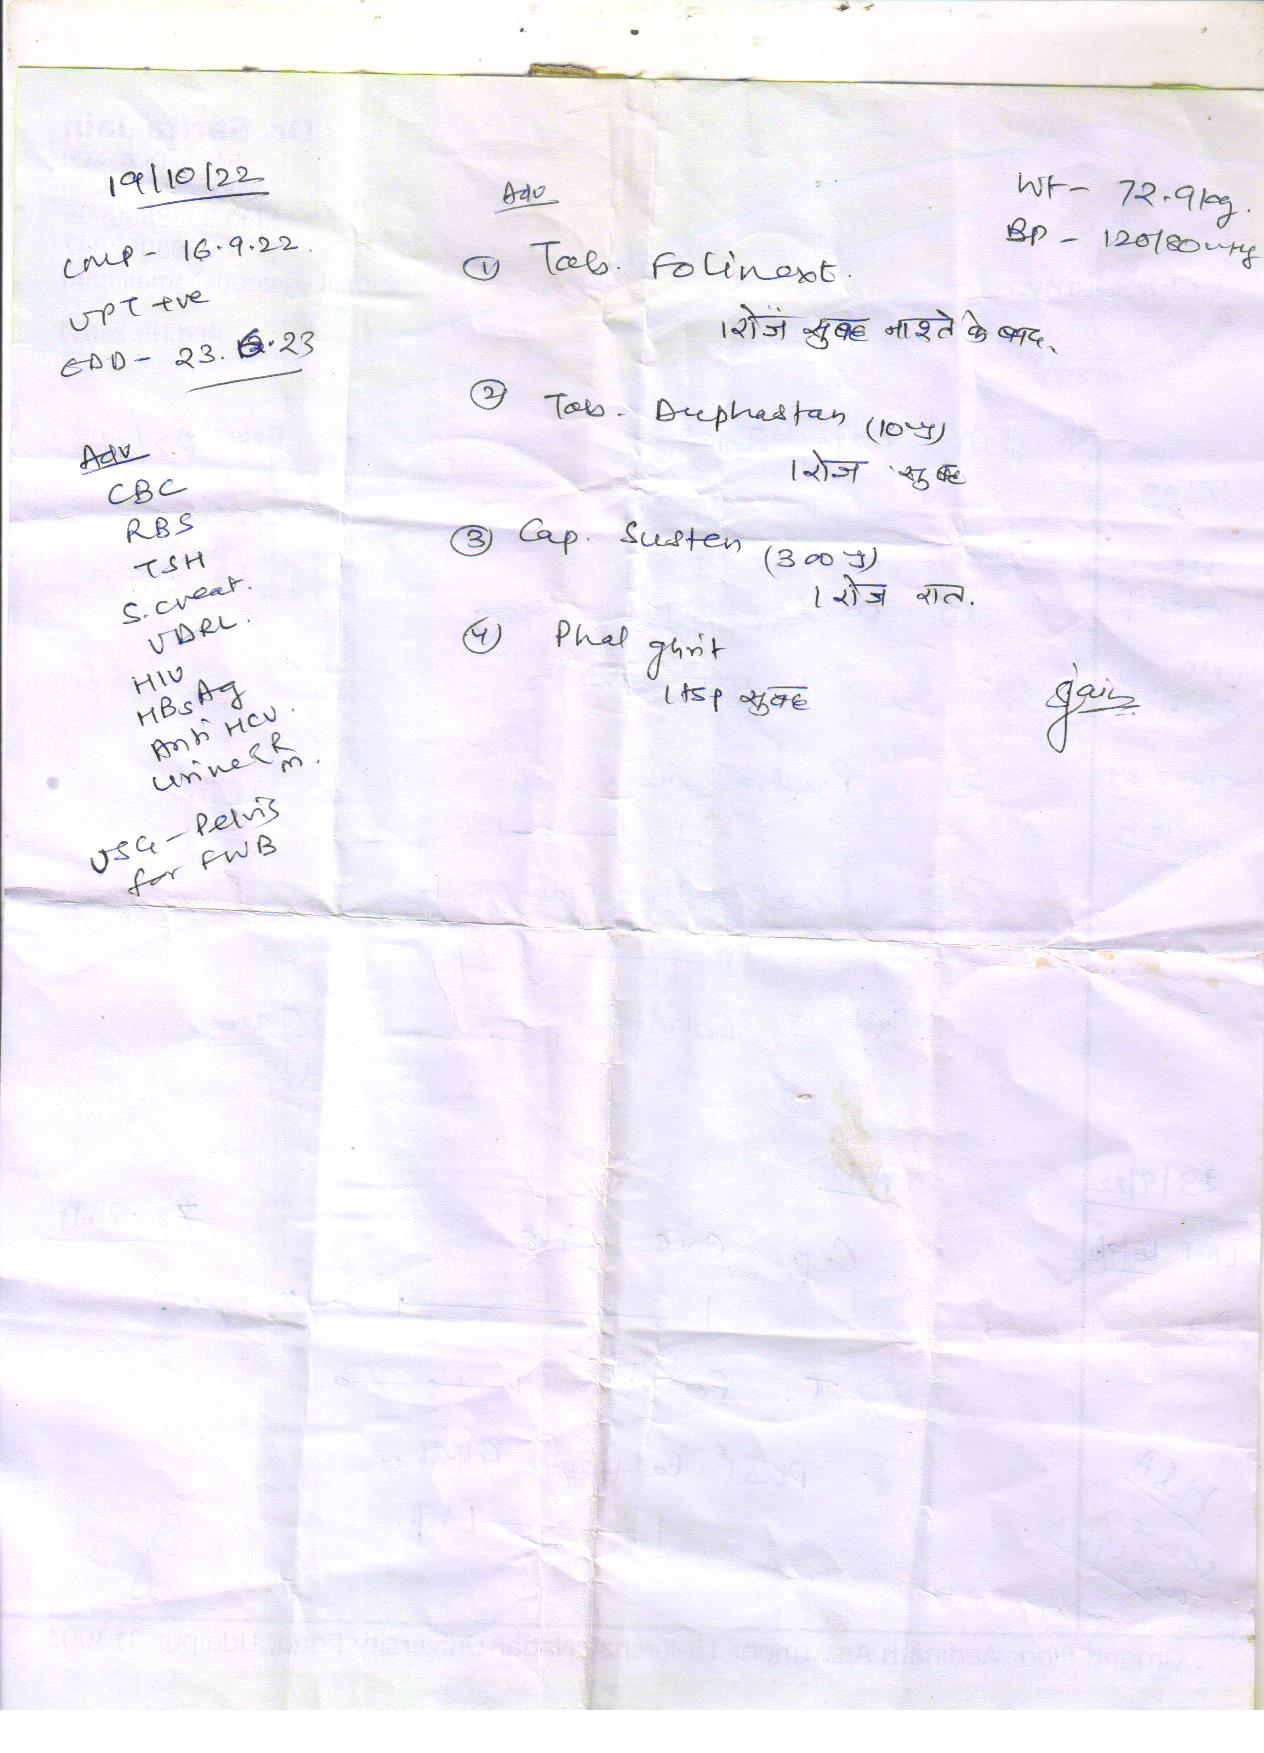 19/10/22
LMP - 16.9.22.
UPT +ve
EDD - 23.6.23
Adv
CBC
RBS
TSH
S. Creat.
VDRL.
HIV
HBsAg
Anti HCV.
Urine R
m.
USG - Pelvis
for FWB
Adv
① Tab. Folinext.
1 रोज सुबह नाश्ते के बाद.
② Tab. Duphastan (10mg)
1 रोज सुबह
③ Cap. Susten (300mg)
1 रोज रात.
④ Phal ghrit
1 tsp सुबह
Wt - 72.9kg.
BP - 120/80 mmHg
Jain